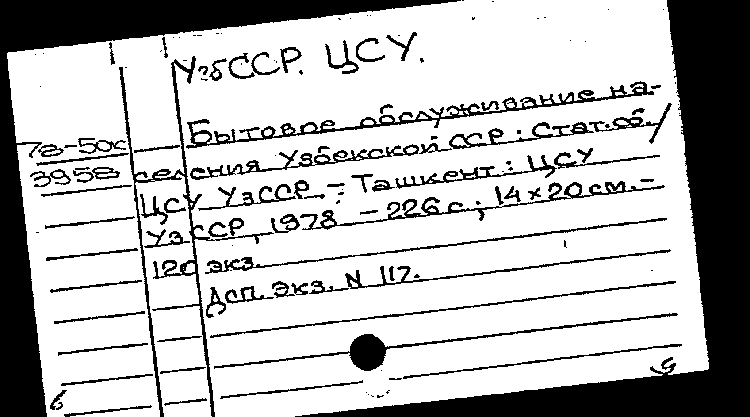 УзбССР. ЦСУ.
Бытовое обслуживание на-
78-50с
селения Узбекской ССР : Стат.сб./
3958
ЦСУ УзССР. – Ташкент : ЦСУ
УзССР, 1978 – 226 с ; 14×20 см. –
120 экз.
Дсп. Экз. N 117.